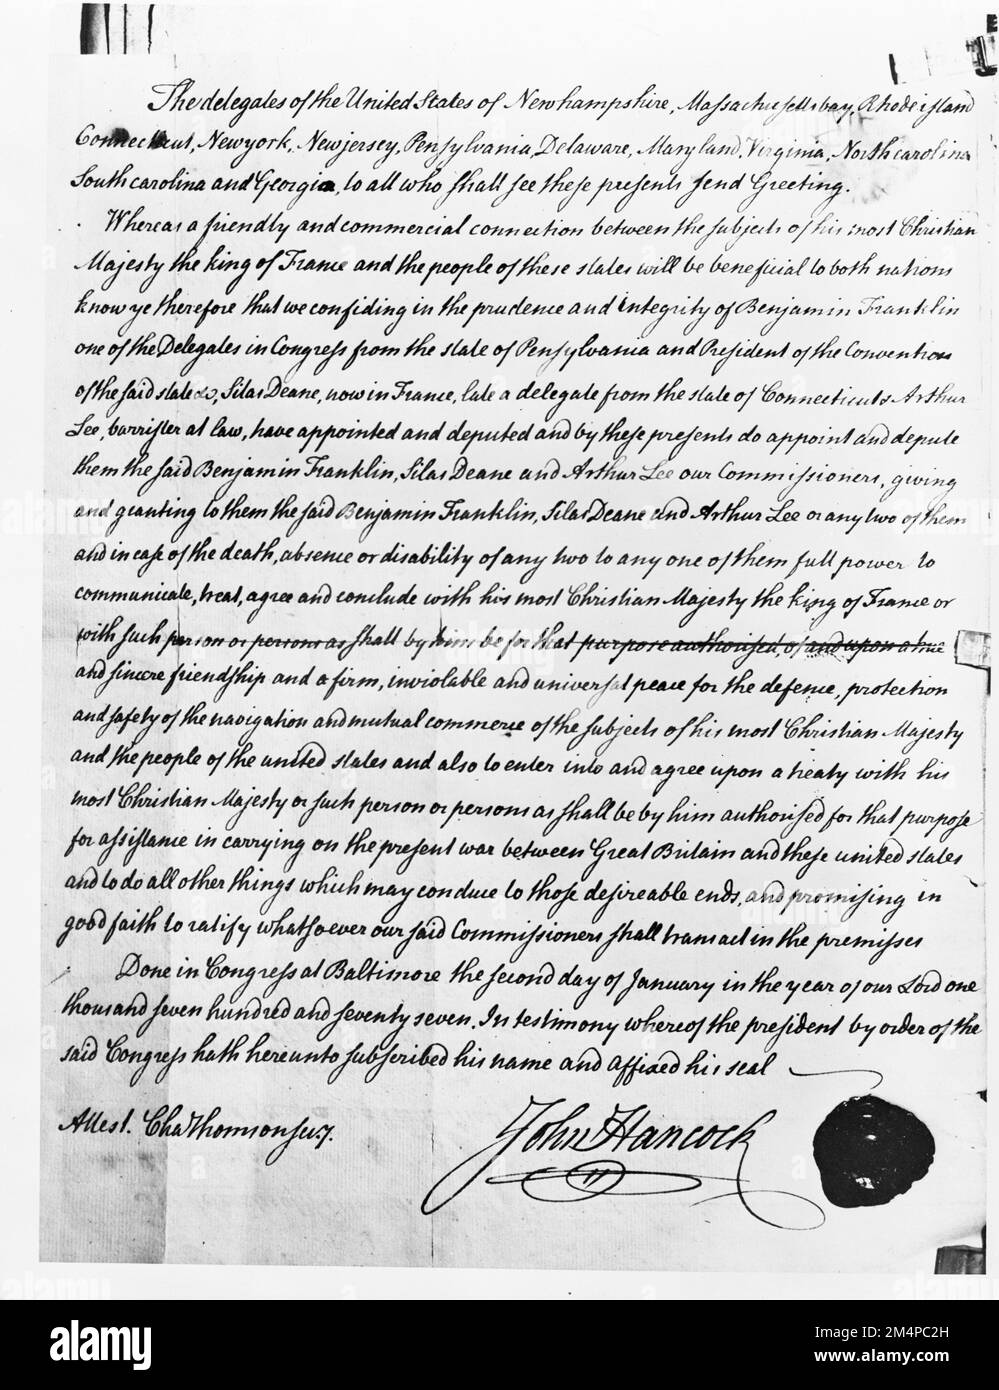 The delegates of the United States of Newhampshire, Massachusetts bay, Rhode island
Connecticut, Newyork, Newjersey, Pensylvania, Delaware, Maryland, Virginia, Northcarolina
Southcarolina and Georgia, to all who shall see these presents send Greeting.
Whereas a friendly and commercial connection between the subjects of his most Christian
Majesty the king of France and the people of these states will be beneficial to both nations
know ye therefore that we confiding in the prudence and integrity of Benjamin Franklin
one of the Delegates in Congress from the state of Pensylvania and President of the Convention
of the said state &c, Silas Deane, now in France, late a delegate from the state of Connecticut & Arthur
Lee, barrister at law, have appointed and deputed and by these presents do appoint and depute
them the said Benjamin Franklin, Silas Deane and Arthur Lee our Commissioners, giving
and granting to them the said Benjamin Franklin, Silas Deane and Arthur Lee or any two of them
and in case of the death, absence or disability of any two to any one of them full power to
communicate, treat, agree and conclude with his most Christian Majesty the king of France or
with such person or persons as shall by him be for that purpose authorised, of and upon a true
and sincere friendship and a firm, inviolable and universal peace for the defence, protection
and safety of the navigation and mutual commerce of the subjects of his most Christian Majesty
and the people of the united states and also to enter into and agree upon a treaty with his
most Christian Majesty or such person or persons as shall be by him authorised for that purpose
for assistance in carrying on the present war between Great Britain and these united states
and to do all other things which may conduce to those desireable ends, and promising in
good faith to ratify whatsoever our said Commissioners shall transact in the premisses
Done in Congress at Baltimore the second day of January in the year of our Lord one
thousand seven hundred and seventy seven. In testimony whereof the president by order of the
said Congress hath hereunto subscribed his name and affixed his seal
Attest. Cha Thomson secy.
John Hancock
alamy
Image ID: 2M4PC2H
www.alamy.com